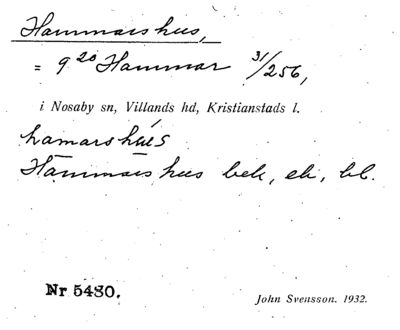 Hammarshus,
= 9²⁰ Hammar ³¹/256,
i Nosaby sn, Villands hd, Kristianstads l.
hamarshus
Hammarshus bek, ek, bl.
Nr 5480.
John Svensson. 1932.